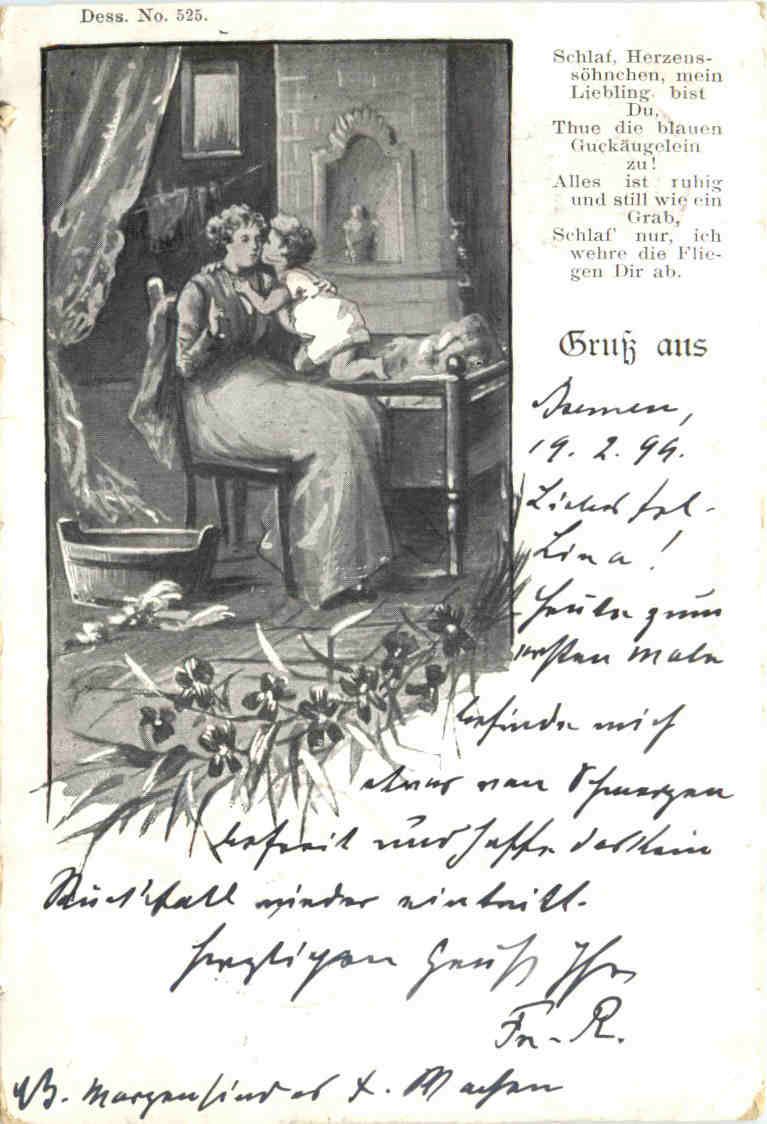 Dess. No. 525.
Schlaf, Herzens-
söhnchen, mein
Liebling bist
Du,
Thue die blauen
Guckäugelein
zu!
Alles ist ruhig
und still wie ein
Grab,
Schlaf' nur, ich
wehre die Flie-
gen Dir ab.
Gruß aus
Bremen,
19. 2. 99.
Liebes Frl.
Lina!
Heute zum
ersten Male
befinde mich
etwas von Schmerzen
befreit und hoffe das kein
Rückfall wieder eintritt.
Herzlichen Gruß Ihr
Fr. R.
NB. Morgen sind es X. Wochen